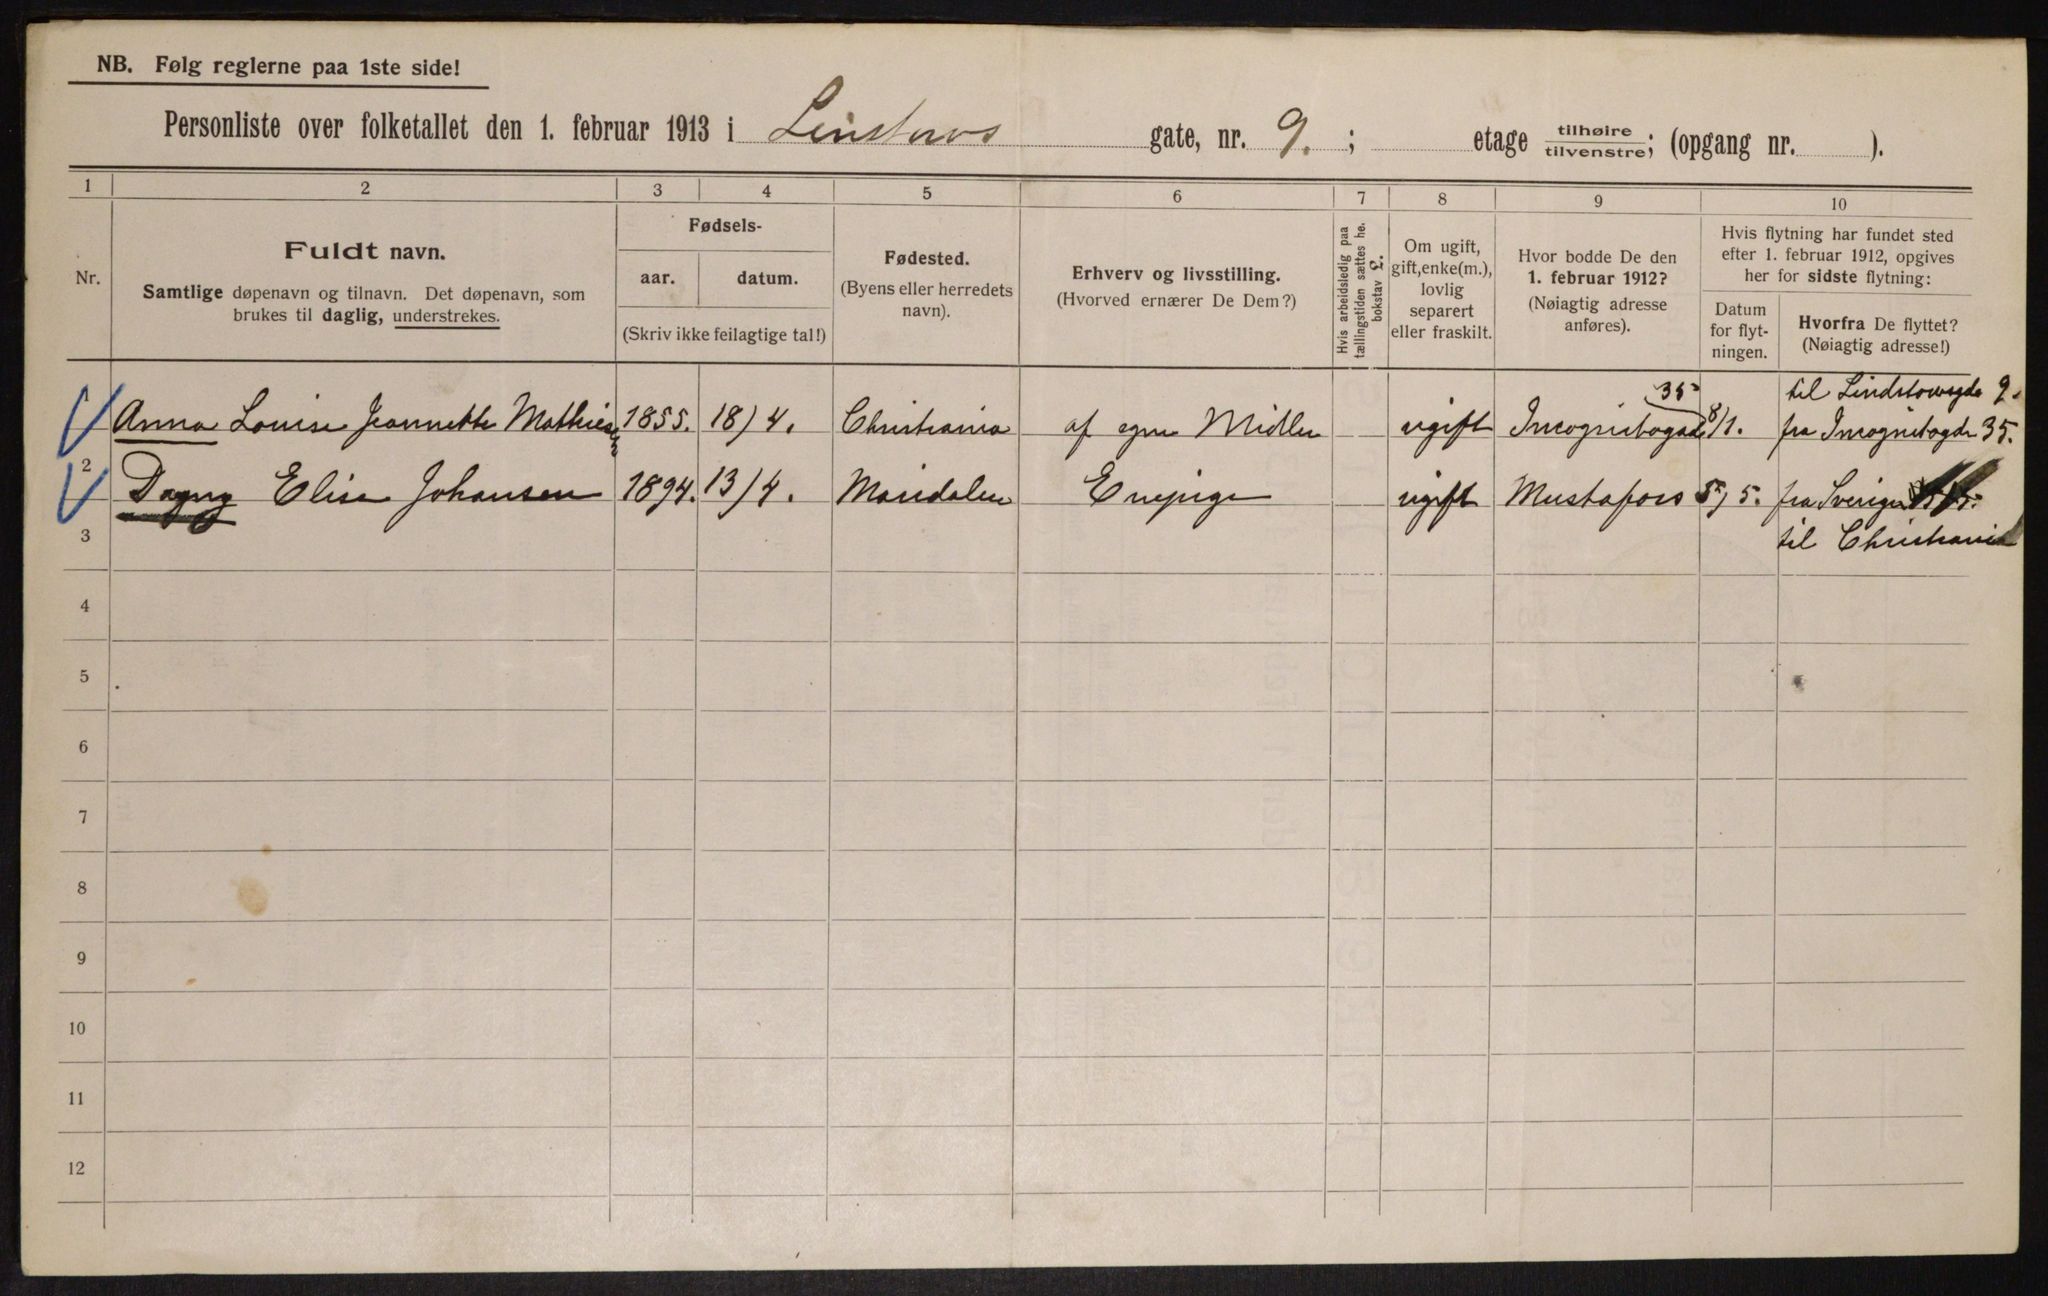 NB. Følg reglerne paa 1ste side!
Personliste over folketallet den 1. februar 1913 i Linstows gate, nr. 9. ; etage tilhøire tilvenstre; (opgang nr. ).
1 2 3 4 5 6 7 8 9 10
Nr.
Fuldt navn.
Samtlige døpenavn og tilnavn. Det døpenavn, som
brukes til daglig, understrekes.
Fødsels-
aar. datum.
(Skriv ikke feilagtige tal!)
Fødested.
(Byens eller herredets
navn).
Erhverv og livsstilling.
(Hvorved ernærer De Dem?)
Hvis arbeidsledig paa
tællingstiden sættes he.
bokstav l.
Om ugift,
gift, enke(m.),
lovlig
separert
eller fraskilt.
Hvor bodde De den
1. februar 1912?
(Nøiagtig adresse
anføres).
Hvis flytning har fundet sted
efter 1. februar 1912, opgives
her for sidste flytning:
Datum
for flyt-
ningen.
Hvorfra De flyttet?
(Nøiagtig adresse!)
35 til Lindstowsgde 9.
Anna Louise Jeannette Mathiesen 1855. 18/4. Christiania af egne Midler ugift Incognitogade 8/1. fra Incognitogde 35.
2
Dagny Elise Johansen 1894. 13/4. Maridalen Enepige ugift Mustafors 5/5. fra Sverige
3 til Christiania
4
5
6
7
8
9
10
11
12